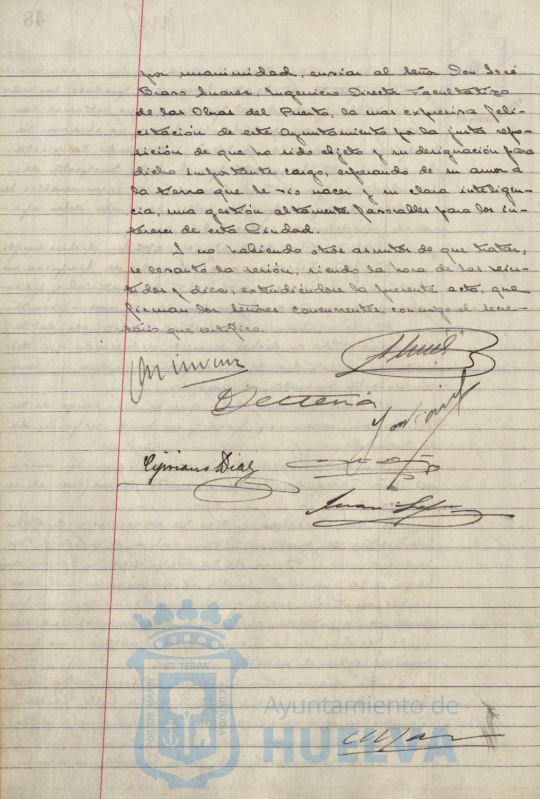 por unanimidad, enviar al Señor Don José
Bravo Suarez, Ingeniero Director Facultativo
de las Obras del Puerto, la mas expresiva feli-
citación de este Ayuntamiento por la justa repo-
sición de que ha sido objeto y su designación para
dicho importante cargo, esperando de su amor a
la tierra que le vio nacer y su clara inteligen-
cia, una gestión altamente favorable para los in-
tereses de esta Ciudad.
Y no habiendo otros asuntos de que tratar,
se levantó la sesión, siendo la hora de las vein-
tidos y diez, extendiéndose la presente acta, que
firman los Señores concurrentes, conmigo el secre-
tario que certifico.
Cipriano Diaz
Juan
PORTUS MARIS ET TERRA CUSTODIA
Ayuntamiento de
HUELVA
48